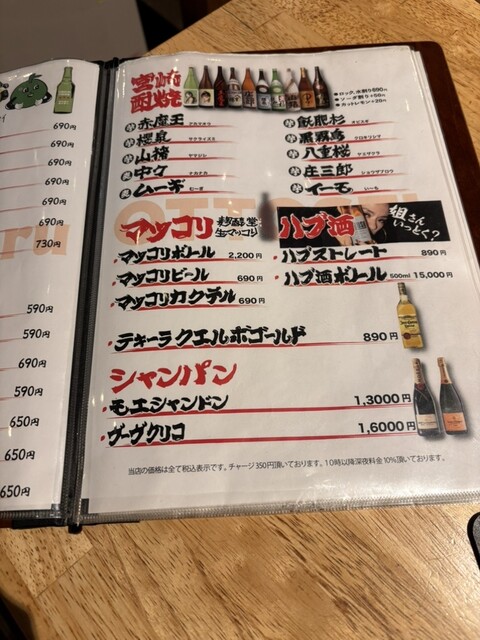 690円
690円
690円
690円
690円
730円
590円
590円
690円
590円
650円
650円
650円
宮崎焼酎
●ロック、水割り590円
●ソーダ割り+50円
●カットレモン+20円
芋 赤魔王 アカマオウ
芋 桜島 サクラジマ
芋 山猪 ヤマシシ
麦 中々 ナカナカ
麦 むーぎ むーぎ
芋 飫肥杉 オビスギ
芋 黒霧島 クロキリシマ
芋 八重桜 ヤエザクラ
芋 庄三郎 ショウザブロウ
芋 いも いーも
マッコリ
生マッコリ
・マッコリボトル 2,200円
・マッコリビール 690円
・マッコリカクテル 690円
ハブ酒
姐さんいっとく?
・ハブストレート 890円
・ハブ酒ボトル 500ml 15,000円
・テキーラクエルボゴールド 890円
シャンパン
・モエシャンドン 1,3000円
・ヴーヴクリコ 1,6000円
当店の価格は全て税込表示です。チャージ350円頂いております。10時以降深夜料金10%頂いております。